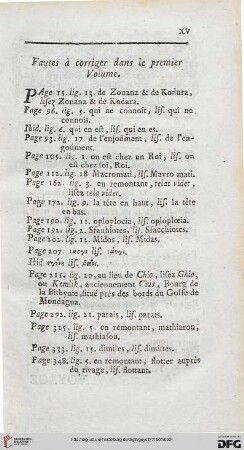 XV
Fautes à corriger dans le premier
Volume.
PAge 15. lig. 13. de Zouana & de Kodura,
lisez Zonana & de Kodara.
Page 96. lig. 5. qui ne connoit, lis. qui ne
connois.
Ibid. lig. 6. qui en est, lis. qui en es.
Page 93. lig. 17 de l'enjoûment, lis. de l'en-
goûment.
Page 105. lig. 1. on est chez un Roi, lis. on
est chez soi, Roi.
Page 112. lig. 18 Macromati, lis. Mavro mati.
Page 162. lig. 3. en remontant, telat videt,
lisez tela videt.
Page 172. lig. 9. la tête en haut, lis. la tête
en bas.
Page 190. lig. 11. oplophocia, lis. oploplœia.
Page 191. lig. 2. Sfathiotes, lis. Sfacthiotes.
Page 202. lig. 12. Midos, lis. Midas.
Page 207. lis.
Ibid lis.
Page 211. lig. 20. au lieu de Chio, lisez Ghio,
ou Kemlik, anciennement Cius, Bourg de
la Bithynie, situé près des bords du Golfe de
Mondagna.
Page 292. lig. 21. parais, lis. parats.
Page 325. lig. 5. en remontant, mathiaron,
lis. mathiasou.
Page 333. lig. 15. dimiles, lis. dimittes.
Page 348. lig. 5. en remontant, flotter auprès
du rivage, lis. flottant.
DFG